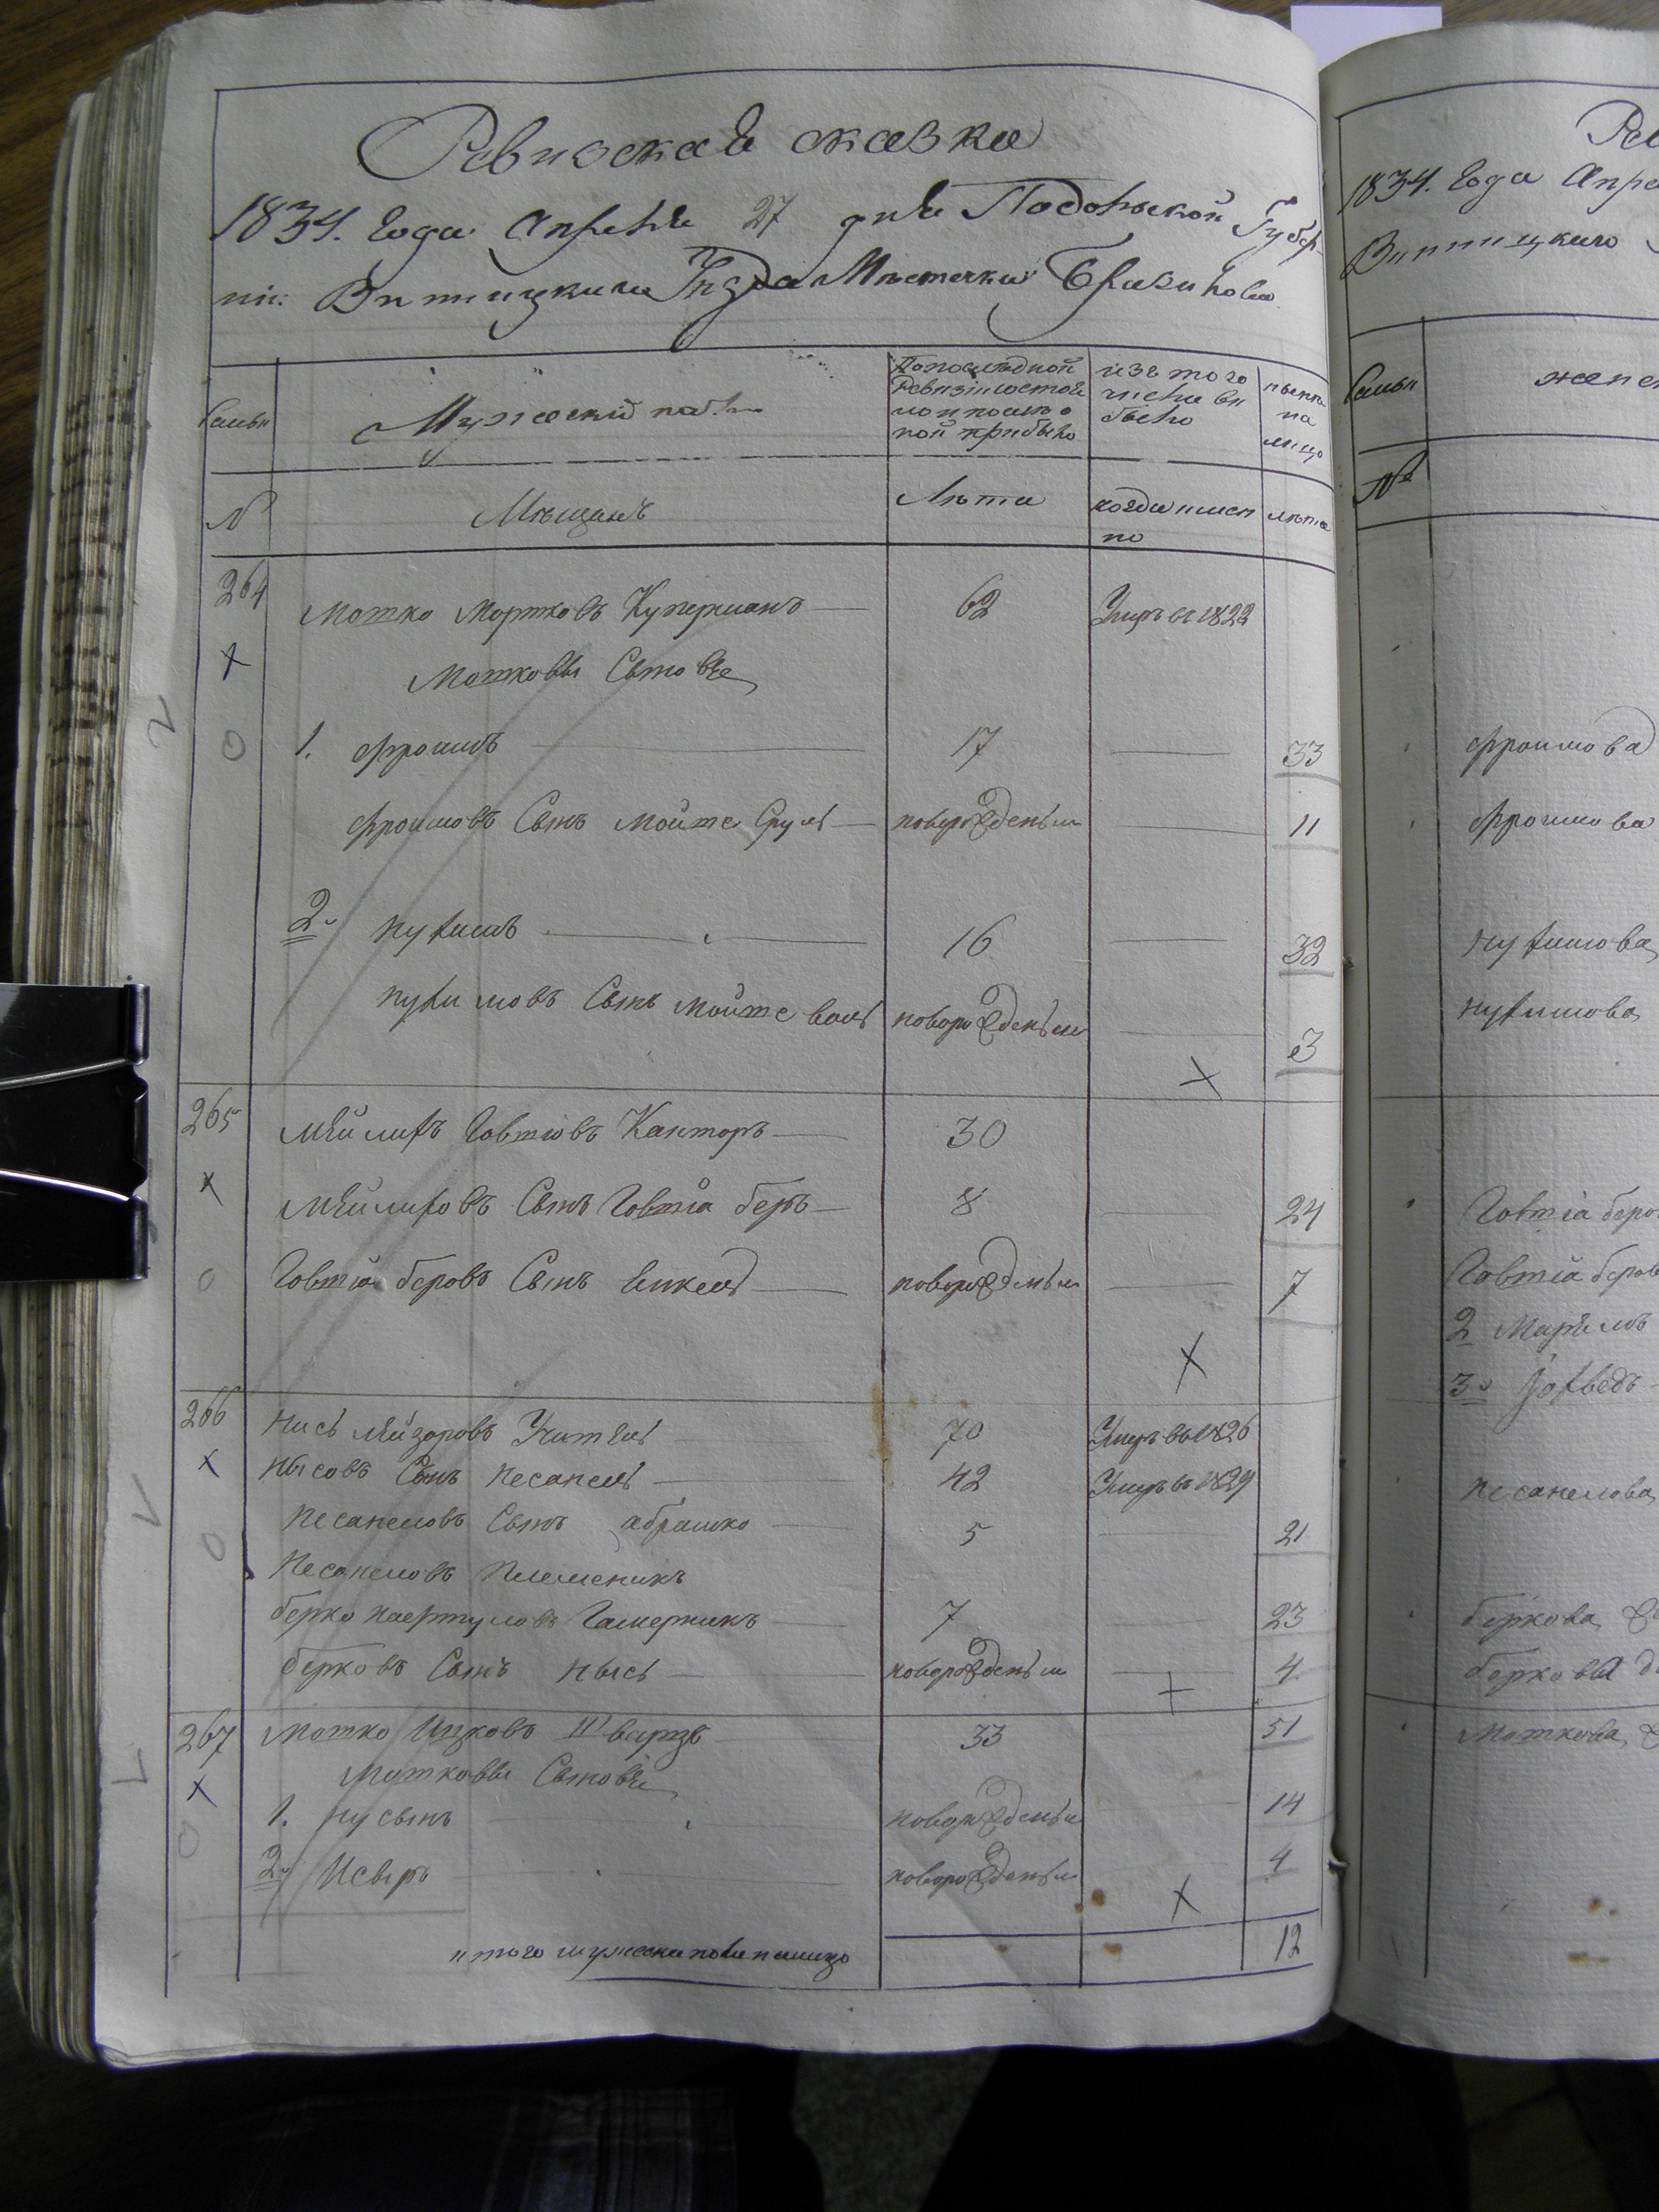 Ревизская сказка
1834. Года Апреля 27 дня Подольской Губер
нiи Винницкаго Уезда Мѣстечка Браилова
Семьи
Мужескiй полъ
По последной Ревизiи состояло и после оной прибыло
изъ того числа выбыло
ныенѣ на лицо
№
Мѣщанъ
Лѣта
когда имен но
лѣта
264 Мотко Мортковъ Куперманъ 62 Умръ въ 1822
Мотковы Сыновье
1. Фроимъ 17 33
Фроимовъ Сынъ Мойше Сруль новорожденъи 11
2. Нухимъ 16 32
Нухимовъ Сынъ Мойше вольъ новорожденъи 3
265 Мейлихъ Говшiовъ Канторъ 30
Мейлиховъ Сынъ Говшiа беръ 8 24
Говшiа беровъ Сынъ Янкель новорожденъи 7
266 Нись Лейзоровъ Учитель 70 Умръ въ 1826
Нысовъ Сынъ Песанель 42 Умръ въ 1829
Песанеловъ Сынъ абрамко 5 21
Песанеловъ Племеникъ
берко Гамерникъ 7 23
берковъ Сынъ Нысь новорожденъи 4
267 Мотко Ицковъ Шварцъ 33 51
Мотковы Сыновье
1. Нусынъ новорожденъи 14
2. Исеръ новорожденъи 4
итого мужеска пола налицо 12
Ре
1834. Года Апре
Винницкаго
Семьи
женс
№
Фроимова
Фроимова
Нухимова
Нухимова
Говшiа беро
Говшiа беров
2 Марiемъ
3
Песанелова
беркова
беркова д
Моткова